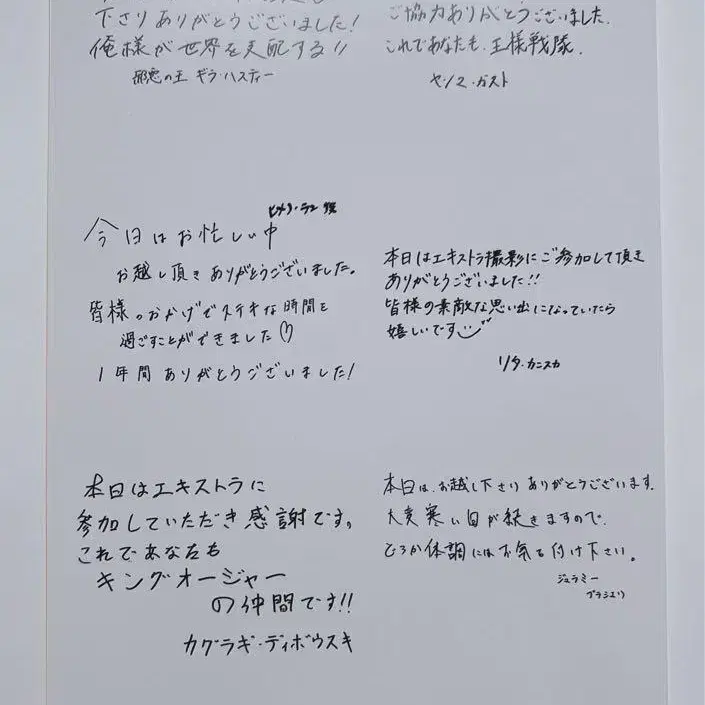 下さりありがとうございました!
俺様が世界を支配する!!
邪悪の王 ギラ・ハスティー
ご協力ありがとうございました。
これであなたも、王様戦隊。
ヤンマ・ガスト
ヒメノ・ラン 役
今日はお忙しい中
お越し頂きありがとうございました。
皆様のおかげでステキな時間を
過ごすことができました♡
1年間ありがとうございました!
本日はエキストラ撮影にご参加して頂き
ありがとうございました!!
皆様の素敵な思い出になっていたら
嬉しいです
リタ・カニスカ
本日はエキストラに
参加していただき感謝です。
これであなたも
キングオージャー
の仲間です!!
カグラギ・ディボウスキ
本日は、お越し下さりありがとうございます。
大変寒い日が続きますので、
どうか体調にはお気を付け下さい。
ジェラミー
ブラシエリ